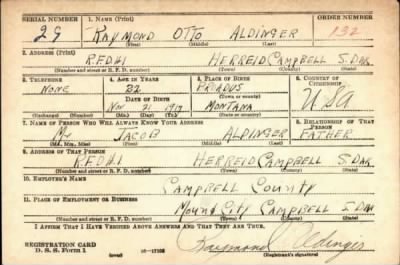 SERIAL NUMBER 1. NAME (Print) ORDER NUMBER
29 RAYMOND OTTO ALDINGER 132
(First) (Middle) (Last)
2. ADDRESS (Print)
R.F.D#1 HERREID CAMPBELL S.DAK
(Number and street or R. F. D. number) (Town) (County) (State)
3. TELEPHONE 4. AGE IN YEARS 5. PLACE OF BIRTH 6. COUNTRY OF CITIZENSHIP
NONE 22 BROADUS USA
DATE OF BIRTH (Town or county)
Nov 21 1917 MONTANA
(Exchange) (Number) (Mo.) (Day) (Yr.) (State or country)
7. NAME OF PERSON WHO WILL ALWAYS KNOW YOUR ADDRESS 8. RELATIONSHIP OF THAT PERSON
Mr JACOB ALDINGER FATHER
(Mr., Mrs., Miss) (First) (Middle) (Last)
9. ADDRESS OF THAT PERSON
R.F.D#1 HERREID CAMPBELL S.DAK
(Number and street or R. F. D. number) (Town) (County) (State)
10. EMPLOYER'S NAME
CAMPBELL COUNTY
11. PLACE OF EMPLOYMENT OR BUSINESS
MOUND CITY CAMPBELL S.DAK
(Number and street or R. F. D. number) (Town) (County) (State)
I AFFIRM THAT I HAVE VERIFIED ABOVE ANSWERS AND THAT THEY ARE TRUE.
REGISTRATION CARD
D. S. S. Form 1 (over) Raymond Aldinger
(Registrant's signature)